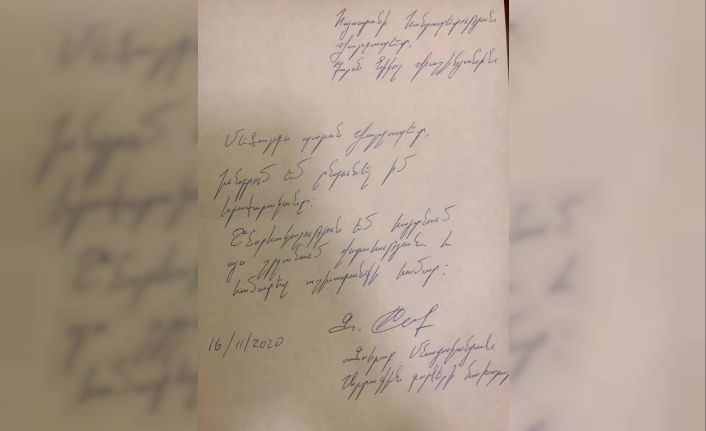 Հայաստանի Հանրապետության
վարչապետ,
պարոն Նիկոլ Փաշինյանին
Մեծարգո պարոն վարչապետ,
խնդրում եմ ընդունել իմ
հրաժարականը:
Շնորհակալություն եմ հայտնում
այս շրջանում վստահության և
համատեղ աշխատանքի համար:
Զ.
16/11/2020
Զոհրաբ Մնացականյան
Արտաքին գործերի նախարար